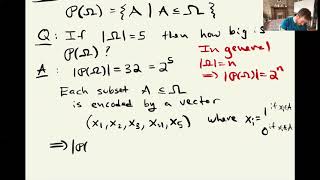 P(Ω) = { A | A ⊆ Ω }
Q: If |Ω|=5 then how big is
P(Ω)?
In general
|Ω|=n
⇒ |P(Ω)|=2ⁿ
A: |P(Ω)|=32=2⁵
Each subset A ⊆ Ω
is encoded by a vector
(x₁, x₂, x₃, x₄, x₅) where xᵢ= 1 if xᵢ∈A
0 if xᵢ∉A
⇒ |P